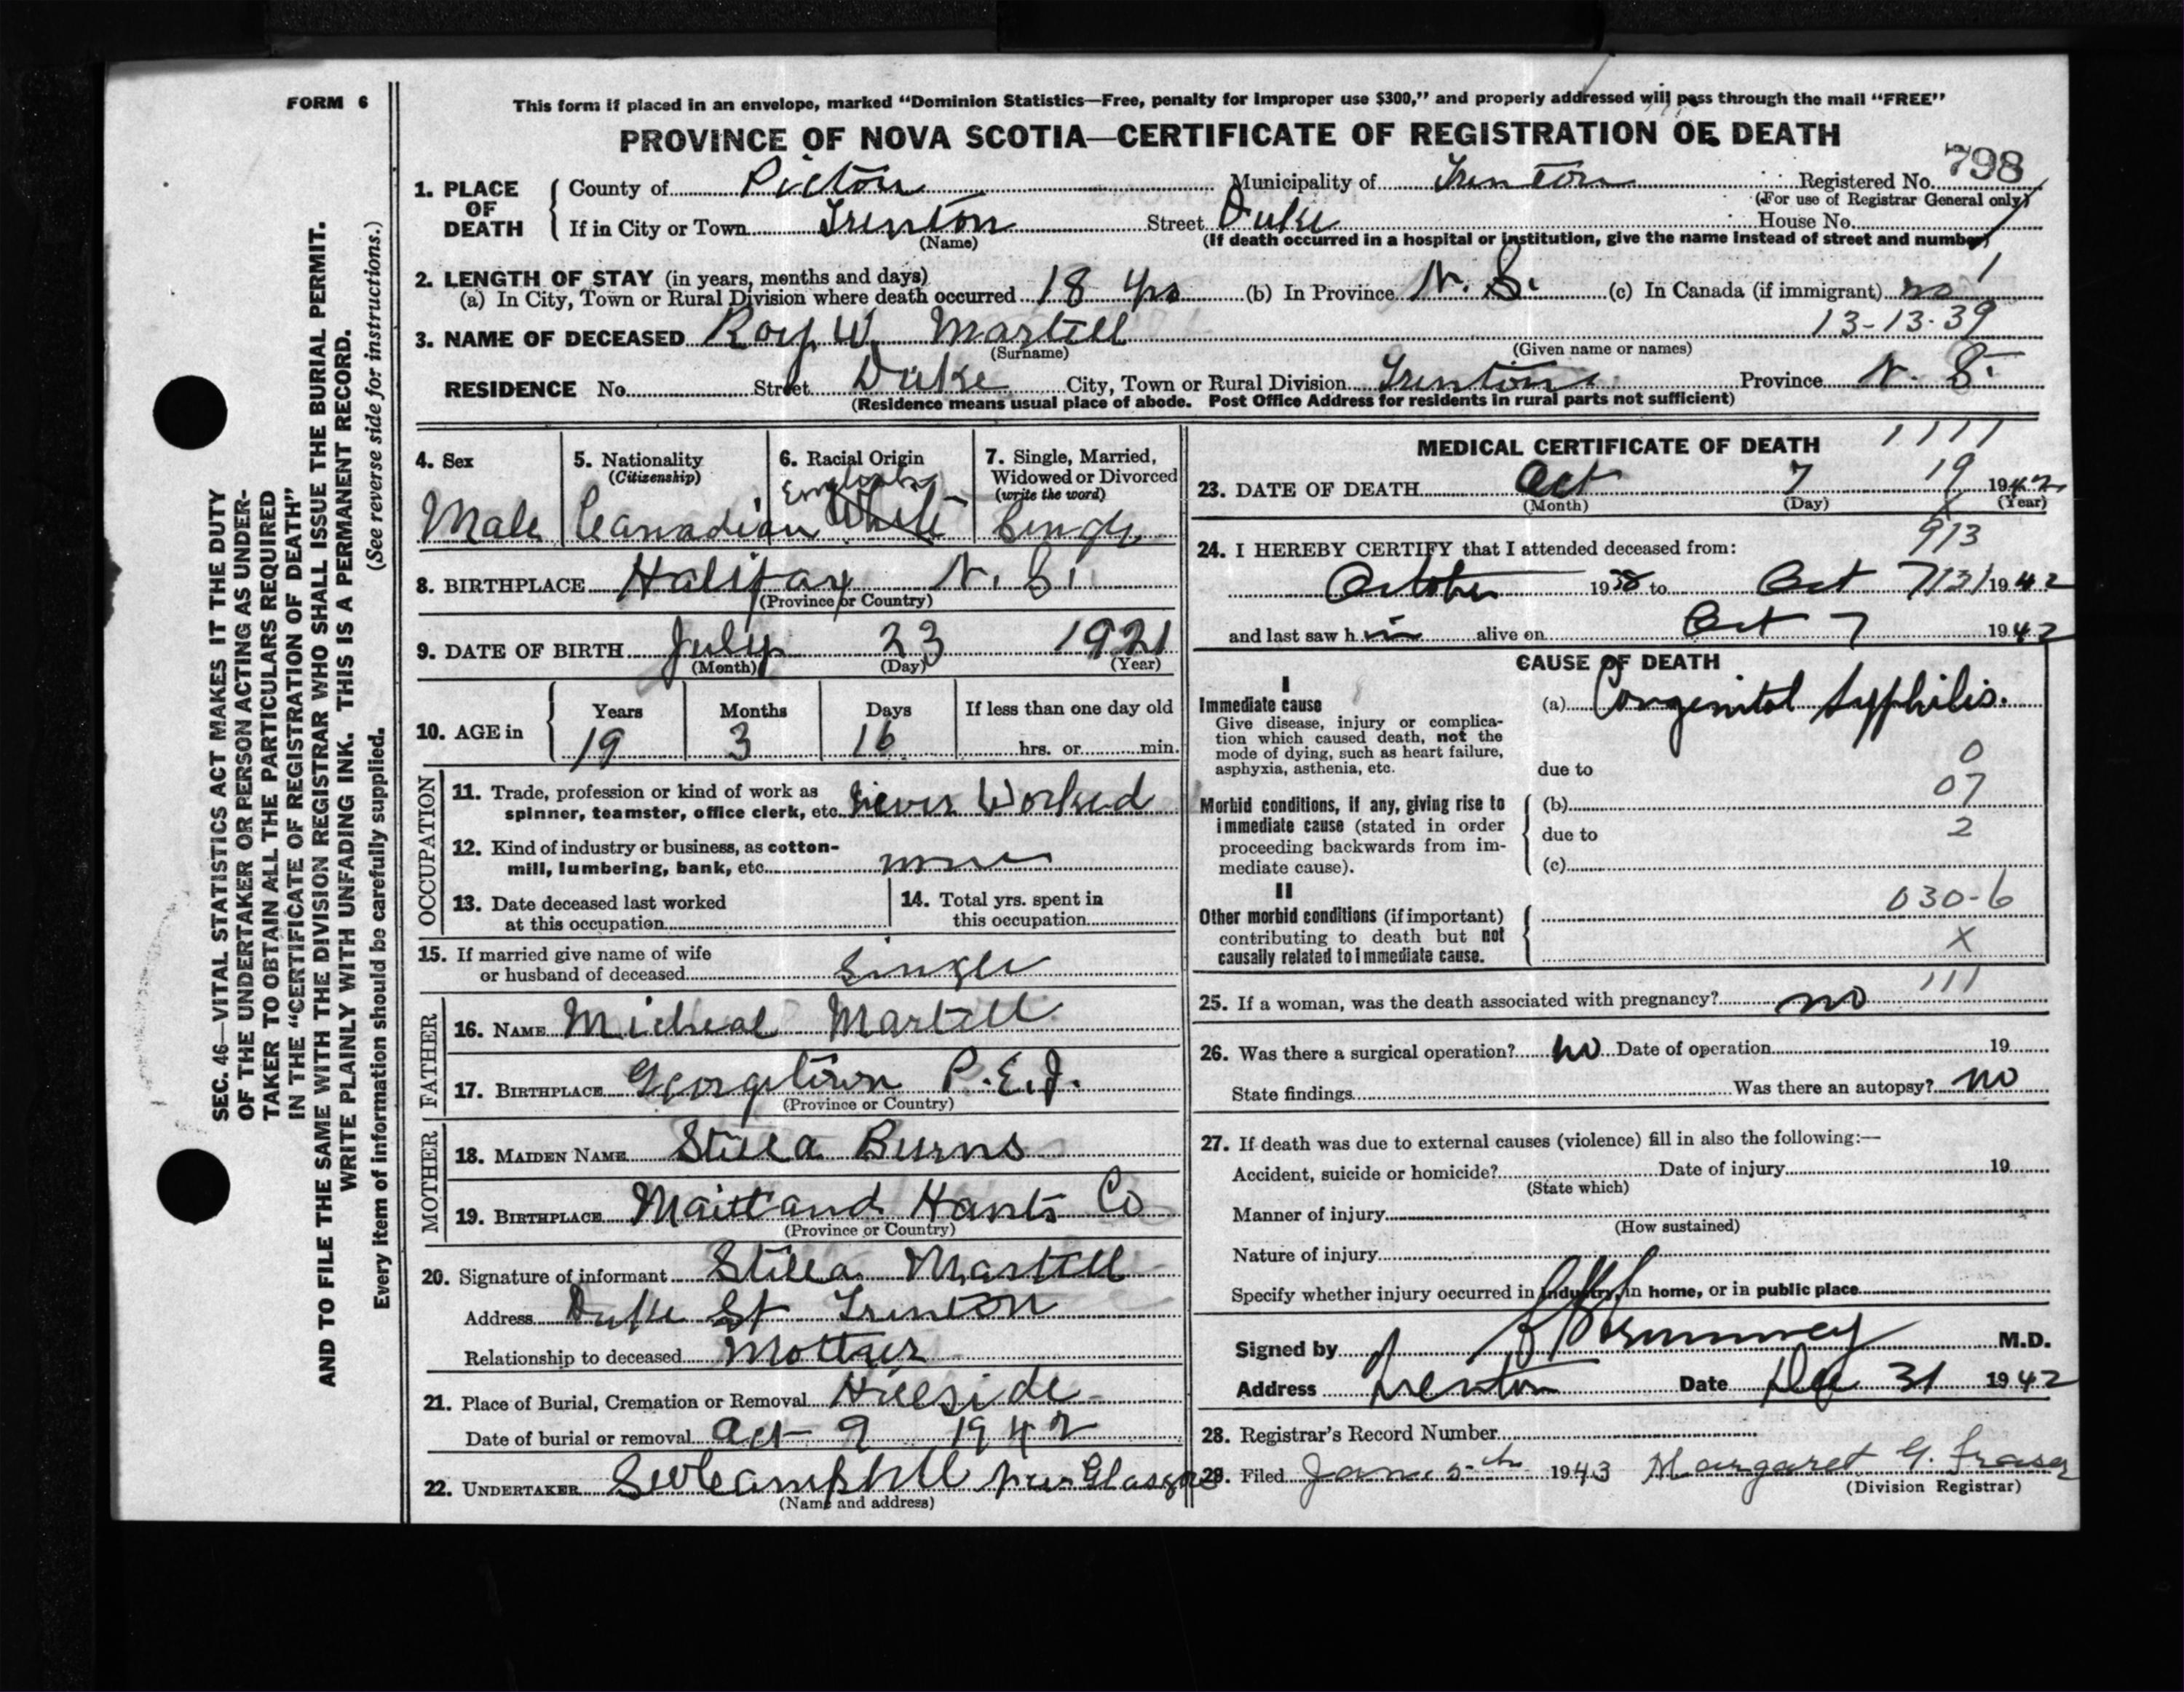 FORM 6
This form if placed in an envelope, marked “Dominion Statistics—Free, penalty for improper use $300,” and properly addressed will pass through the mail “FREE”
PROVINCE OF NOVA SCOTIA—CERTIFICATE OF REGISTRATION OF DEATH
798
1. PLACE OF DEATH
County of Pictou Municipality of Trenton Registered No.
(For use of Registrar General only)
If in City or Town Trenton Street Duke House No.
(Name)
(If death occurred in a hospital or institution, give the name instead of street and number)
2. LENGTH OF STAY (in years, months and days)
(a) In City, Town or Rural Division where death occurred 18 yrs (b) In Province N. S. (c) In Canada (if immigrant) no 1
13-13-39
3. NAME OF DECEASED Roy W. Martell
(Surname) (Given name or names)
RESIDENCE No. Street Duke City, Town or Rural Division Trenton Province N. S.
(Residence means usual place of abode. Post Office Address for residents in rural parts not sufficient)
4. Sex
Male
5. Nationality
(Citizenship)
Canadian
6. Racial Origin
English
White
7. Single, Married,
Widowed or Divorced
(write the word)
Single
8. BIRTHPLACE Halifax N. S.
(Province or Country)
9. DATE OF BIRTH July 23 1921
(Month) (Day) (Year)
10. AGE in
Years Months Days If less than one day old
19 3 16 hrs. or min.
OCCUPATION
11. Trade, profession or kind of work as
spinner, teamster, office clerk, etc. Never Worked
12. Kind of industry or business, as cotton-
mill, lumbering, bank, etc. none
13. Date deceased last worked
at this occupation
14. Total yrs. spent in
this occupation
15. If married give name of wife
or husband of deceased Single
FATHER
16. NAME Micheal Martell
17. BIRTHPLACE Georgetown P.E.I.
(Province or Country)
MOTHER
18. MAIDEN NAME Stella Burns
19. BIRTHPLACE Maitland Hants Co
(Province or Country)
20. Signature of informant Stella Martell
Address Duke St Trenton
Relationship to deceased Mother
21. Place of Burial, Cremation or Removal Hillside
Date of burial or removal Oct 9 1942
22. UNDERTAKER Campbell New Glasgow
(Name and address)
MEDICAL CERTIFICATE OF DEATH
1111
19
23. DATE OF DEATH Oct 7 1942
(Month) (Day) (Year)
X
913
24. I HEREBY CERTIFY that I attended deceased from:
October 1938 to Oct 7 131 1942
and last saw h im alive on Oct 7 1942
CAUSE OF DEATH
I
Immediate cause
Give disease, injury or complica-
tion which caused death, not the
mode of dying, such as heart failure,
asphyxia, asthenia, etc.
(a) Congenital Syphilis.
0
due to
07
Morbid conditions, if any, giving rise to
immediate cause (stated in order
proceeding backwards from im-
mediate cause).
(b)
due to 2
(c)
II
Other morbid conditions (if important)
contributing to death but not
causally related to immediate cause.
030-6
X
111
25. If a woman, was the death associated with pregnancy? no
26. Was there a surgical operation? no Date of operation 19
State findings Was there an autopsy? no
27. If death was due to external causes (violence) fill in also the following:—
Accident, suicide or homicide? Date of injury 19
(State which)
Manner of injury
(How sustained)
Nature of injury
Specify whether injury occurred in industry, in home, or in public place
Signed by M.D.
Address Trenton Date Dec 31 1942
28. Registrar's Record Number
29. Filed Jan. 5th 1943 Margaret G. Fraser
(Division Registrar)
SEC. 46—VITAL STATISTICS ACT MAKES IT THE DUTY
OF THE UNDERTAKER OR PERSON ACTING AS UNDER-
TAKER TO OBTAIN ALL THE PARTICULARS REQUIRED
IN THE “CERTIFICATE OF REGISTRATION OF DEATH”
AND TO FILE THE SAME WITH THE DIVISION REGISTRAR WHO SHALL ISSUE THE BURIAL PERMIT.
WRITE PLAINLY WITH UNFADING INK. THIS IS A PERMANENT RECORD.
Every item of information should be carefully supplied. (See reverse side for instructions.)